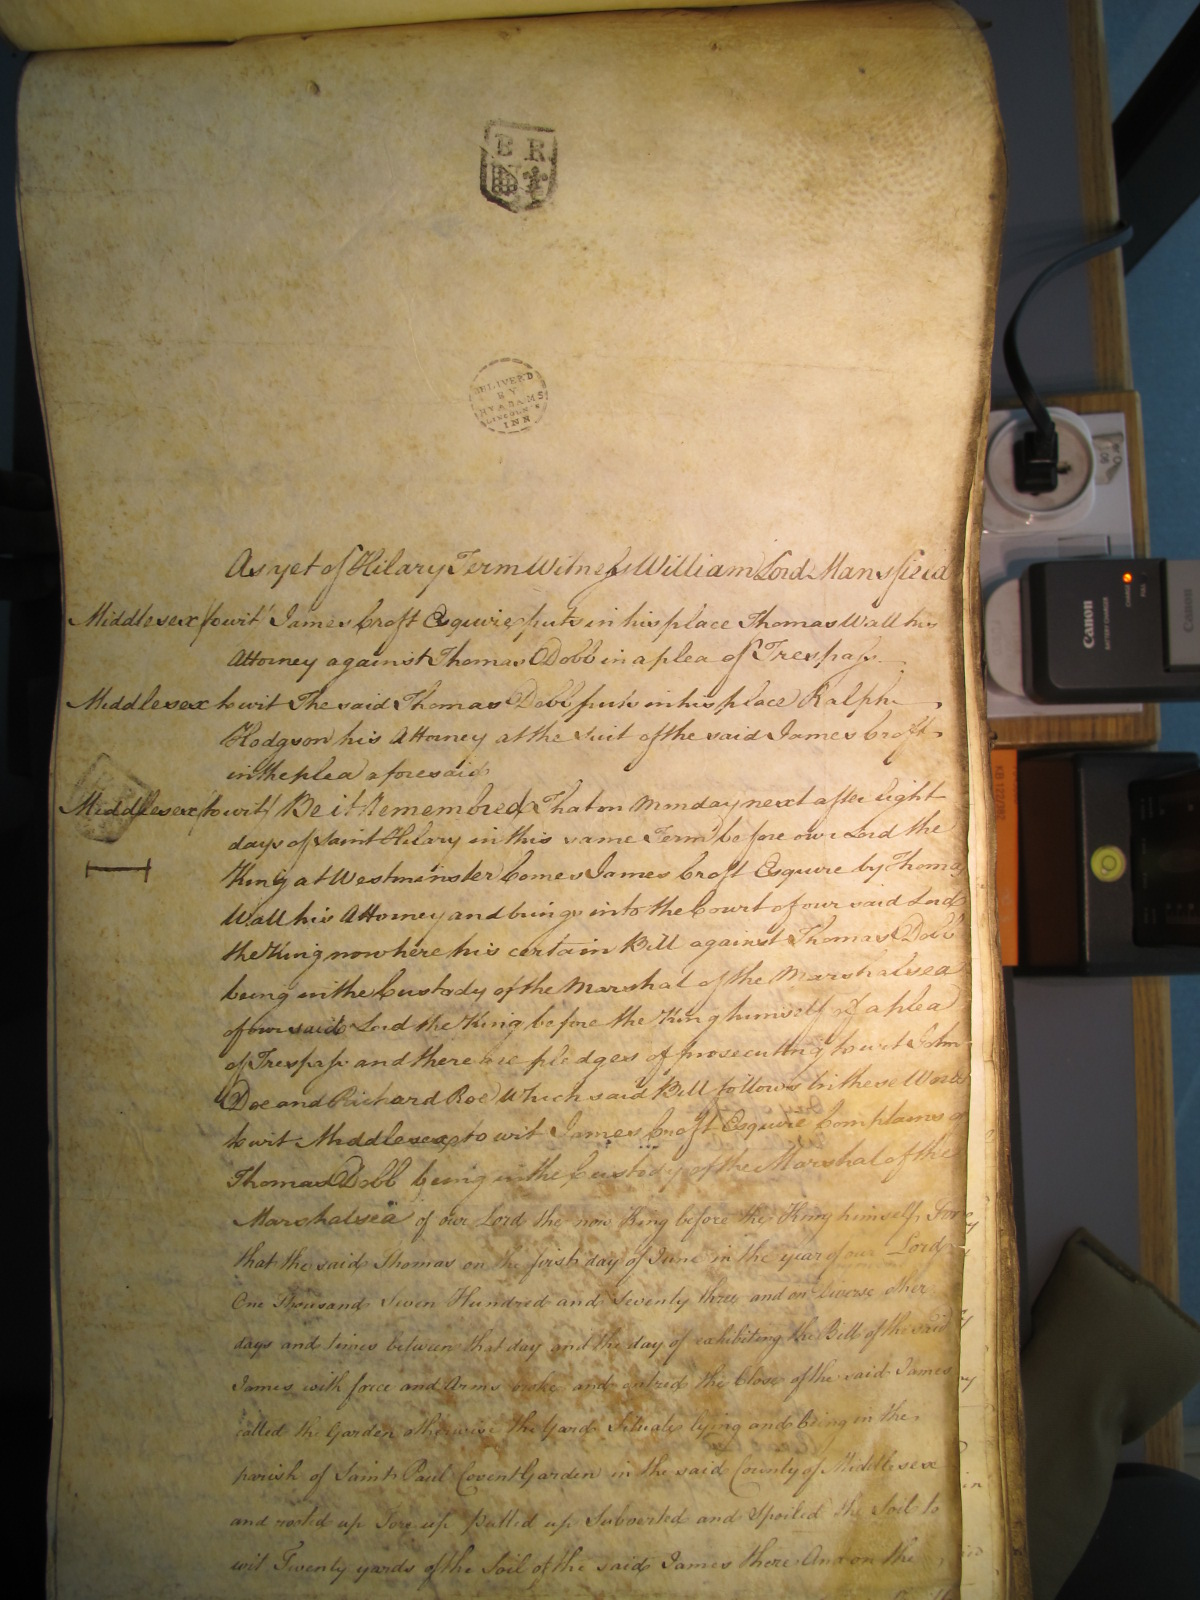 B R
DELIVERD
BY
ADAMS
LINCOLN'S
INN
As yet of Hilary Term Witness William Lord Mansfield
Middlesex to wit James Croft Esquire puts in his place Thomas Wall his
Attorney against Thomas Dobb in a plea of Trespass
Middlesex to wit The said Thomas Dobb puts in his place Ralph
Hodgson his Attorney at the suit of the said James Croft
in the plea aforesaid
Middlesex to wit Be it Remembred That on Monday next after Eight
days of Saint Hilary in this same Term before our Lord the
King at Westminster Comes James Croft Esquire by Thomas
Wall his Attorney and brings into the Court of our said Lord
the King now here his certain Bill against Thomas Dobb
being in the Custody of the Marshal of the Marshalsea
of our said Lord the King before the King himself of a plea
of Trespass and there are pledges of prosecuting to wit John
Doe and Richard Roe Which said Bill follows in these Words
to wit Middlesex to wit James Croft Esquire Complains of
Thomas Dobb being in the Custody of the Marshal of the
Marshalsea of our Lord the now King before the King himself, For
that the said Thomas on the first day of June in the year of our Lord
One Thousand Seven Hundred and Seventy three and on Diverse other
days and times between that day and the day of exhibiting the Bill of the said
James with force and Arms broke and entred the Close of the said James
called the Garden otherwise the Yard Situate lying and being in the
parish of Saint Paul Covent Garden in the said County of Middlesex
and rooted up Tore up pulled up Subverted and Spoiled the Soil to
wit Twenty yards of the Soil of the said James there And on the
Canon
BATTERY CHARGER
CHARGE
FULL
Canon